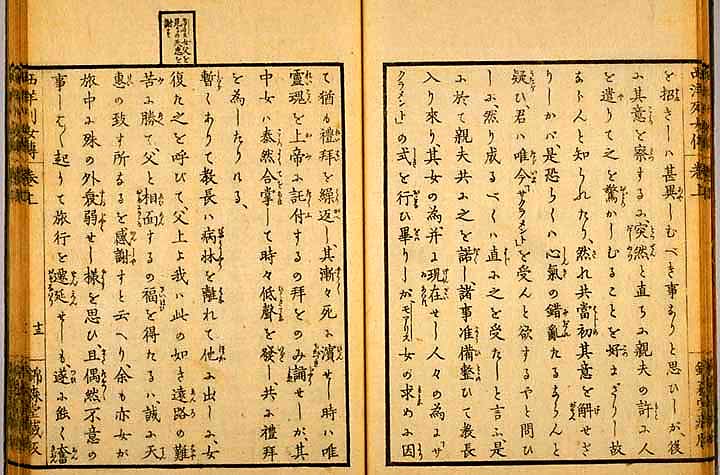 西洋列女傳 卷上
を招きしハ甚異しむべき事なりと思ひしが後
に其意を察するに突然と直ちに親夫の許に人
を遣りて之を驚かしむることを好まざりし故
なんと知られたり、然れ共當初其意を解せざ
りしかバ、是恐らくハ心氣の錯亂たるならんと
疑ひ君ハ唯今「サクラメント」を受んと欲するやと問ひ
しに、然り成るべくハ直に之を受たしと言ふ、是
に於て親夫共に之を諾し諸事准備整ひて教長
入り來り其女の為并に現在せし人々の為に「サ
クラメント」の式を行ひ畢りしが、「モアリス」女の求めに因
て猶も禮拜を繰返し、其漸々死に瀕せし時ハ唯
靈魂を上帝に託付するの拜をのみ誦せしが、其
中女ハ泰然合掌して時々低聲を發し共に禮拜
を為したりける、
暫くありて教長ハ病牀を離れて他に出しに、女
復た之を呼びて父上よ我ハ此の如き遠路の難
苦に勝て、父と相面するの福を得たるハ、誠に天
惠の致す所なるを感謝すと云へり、余も亦女が
旅中に殊の外衰弱せし樣を思ひ、且偶然不意の
事しば〱起りて旅行を遷延せしも遂に能く奮
西洋列女傳 卷上